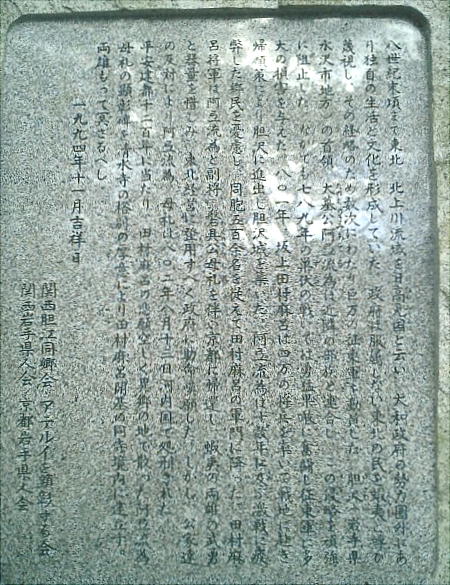 八世紀末頃まで東北・北上川流域を日高見国と云い、大和政府の勢力圏外にあ
り独自の生活と文化を形成していた。政府は服属しない東北の民を蝦夷と
蔑視し、その経略のため数次にわたり巨万の征東軍を動員した。胆沢(岩手県
水沢市地方)の首領、大墓公阿弖流為は近隣の部族と連合し、この侵略を頑強
に阻止した。なかでも七八九年の巣伏の戦いでは勇猛果敢に奮闘し征東軍に多
大の損害を与えた。八〇一年、坂上田村麻呂は四万の将兵を率いて戦地に赴き
帰順策により胆沢に進出し胆沢城を築いた。阿弖流為は十数年に及ぶ激戦に疲
弊した郷民を憂慮し、同胞五百余名を従えて田村麻呂の軍門に降った。田村麻
呂将軍は阿弖流為と副将磐具公母礼を伴い京都に帰還し、蝦夷の両雄の武勇
と器量を惜しみ、東北経営に登用すべく政府に助命嘆願した。しかし、公家達
の反対により阿弖流為、母礼は八〇二年八月十三日河内国で処刑された。
平安建都千二百年に当たり、田村麻呂の悲願空しく異郷の地で散った阿弖流為
母礼の顕彰碑を清水寺の格別の厚意により田村麻呂開基の同寺境内に建立す。
両雄もって冥さるべし。
一九九四年十一月吉祥日
関西胆江同郷会 アテルイを顕彰する会
関西岩手県人会 京都岩手県人会